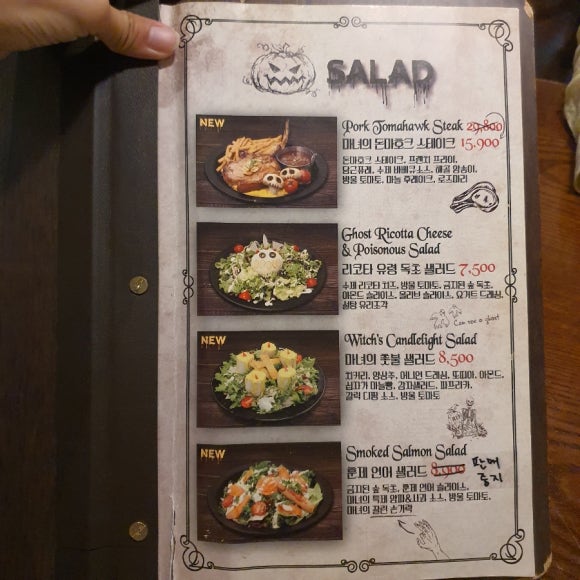 SALAD
NEW
Pork Tomahawk Steak 29,800
마녀의 돈마호크 스테이크 15,900
돈마호크 스테이크, 프렌치 프라이,
당근퓨레, 수제 바베큐소스, 해골 양송이,
방울 토마토, 마늘 후레이크, 로즈마리
Ghost Ricotta Cheese
& Poisonous Salad
리코타 유령 독초 샐러드 7,500
수제 리코타 치즈, 방울 토마토, 금지된 숲 독초,
아몬드 슬라이스, 올리브 슬라이스, 요거트 드레싱,
설탕 유리조각
Can see a ghost
NEW
Witch's Candlelight Salad
마녀의 촛불 샐러드 8,500
치커리, 양상추, 어니언 드레싱, 또띠아, 아몬드,
십자가 마늘빵, 감자샐러드, 파프리카,
갈릭 디핑 소스, 방울 토마토
NEW
Smoked Salmon Salad
훈제 연어 샐러드 8,000
판매
중지
금지된 숲 독초, 훈제 연어 슬라이스,
마녀의 특제 양파&사과 소스, 방울 토마토,
마녀의 잘린 손가락